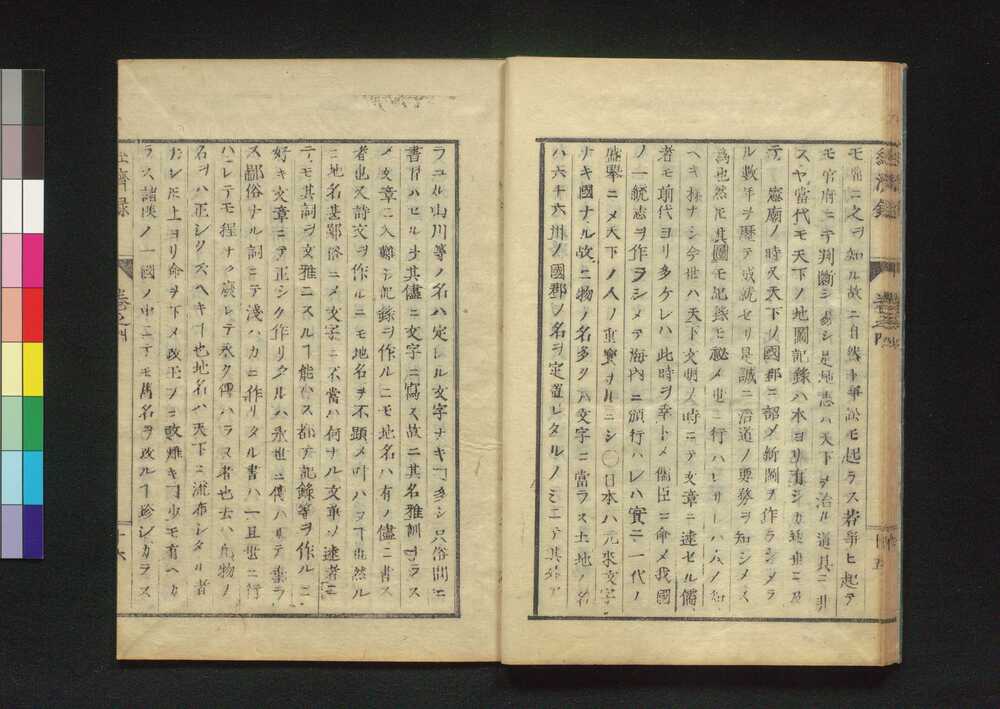 モ常ニ之ヲ知ル故ニ自然ト爭訟モ起ラス若爭ヒ起テ
モ官府ニテ判斷シ易シ是地志ハ天下ヲ治ル道具ニ非
スヤ當代モ天下ノ地圖記錄ハ本ヨリ有シカ
憲廟ノ時又天下ノ國郡ニ詔メ新圖ヲ作ラシメラ
ル數年ヲ歷テ成就セリ是誠ニ治道ノ要務ヲ知シメス
爲也然圧其圖モ記錄モ祕メ世ニ行ハレサレハ人ノ知
ヘキ樣ナシ今世ハ天下文明ノ時ニテ文章ニ達セル儒
者モ前代ヨリ多ケレハ此時ヲ幸トメ儒臣ニ命メ我國
ノ一統志ヲ作ラシメテ海內ニ頒行ハレハ實ニ一代ノ
盛擧ニメ天下ノ人ノ重寶ナルヘシ〇日本ハ元來文字
ナキ國ナル故ニ物ノ名多クハ文字ニ當ラス土地ノ名
ハ六十六州ノ國郡ノ名ヲ定置レタルノミニテ其外ア
經濟錄
卷之四
十五
ラユル山川等ノ名ハ定レル文字ナキヿ多シ只俗間ニ
書習ハセル其儘ニ文字ニ寫ス故ニ其名雅訓ナラス
メ文章ニ入難シ記錄ヲ作ルニモ地名ハ有ノ儘ニ書ス
者也又詩文ヲ作ルニモ地名ヲ不顯メ叶ハヌヿ也然ル
ニ地名甚鄙俗ニメ文字ニ不當ハ何ナル文章ノ達者ニ
テモ其詞ヲ文雅ニスルヿ能ハス都テ記錄等ヲ作ルニ
好キ文章ニテ正シク作リタルハ永世ニ傳ハリテ棄ラ
ス鄙俗ナル詞ニテ淺ハカニ作リタル書ハ一旦世ニ行
ハレテモ程ナク廢レテ永ク傳ハラヌ者也去ハ凡物ノ
名ヲハ正シクスヘキヿ也地名ハ天下ニ流布シタル者
ナレ圧上ヨリ命ヲ下メ改正フニ改難キヿ少モ有ヘカ
ラス諸侯ノ一國ノ中ニテモ舊名ヲ改ルヿ珍シカラス
經濟錄
卷之四
十六